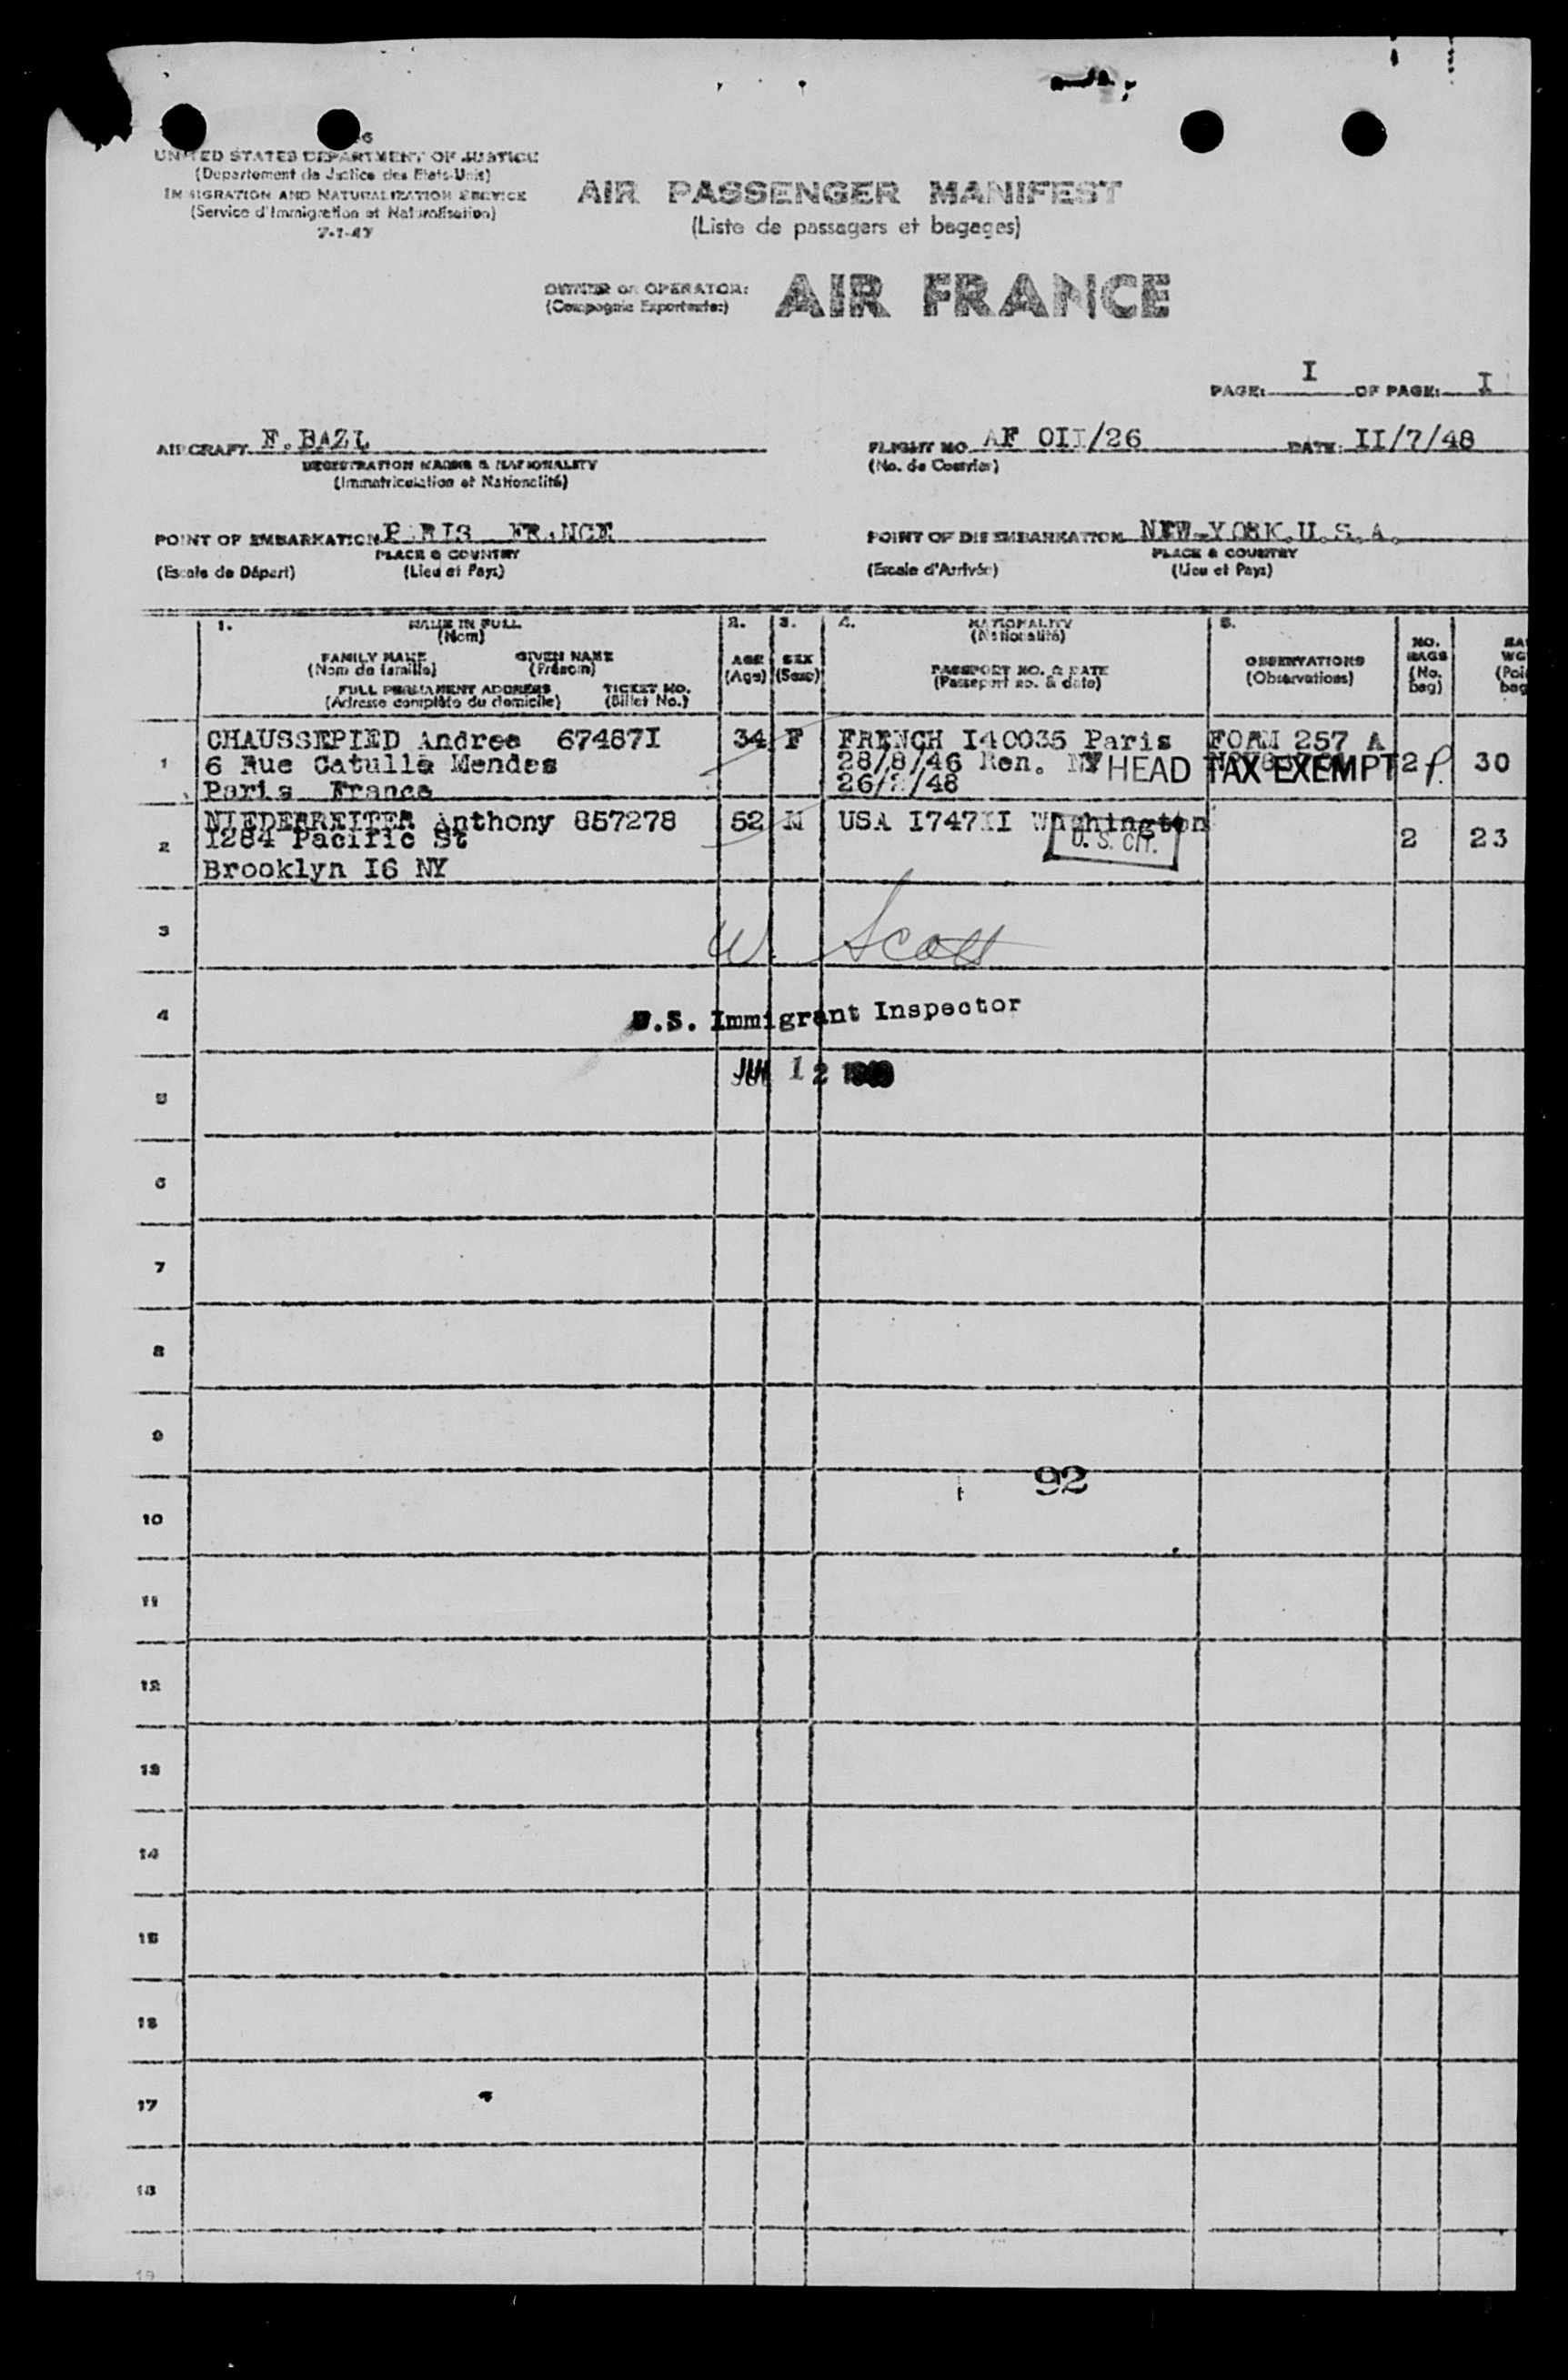 UNITED STATES DEPARTMENT OF JUSTICE
(Departement de Justice des Etats-Unis)
IMMIGRATION AND NATURALIZATION SERVICE
(Service d'Immigration et Naturalisation)
7-1-47
AIR PASSENGER MANIFEST
(Liste de passagers et bagages)
OWNER OR OPERATOR: AIR FRANCE
(Compagnie Exportante:)
PAGE: I OF PAGE: I
AIRCRAFT F.BAZL
REGISTRATION MARKS & NATIONALITY
(Immatriculation et Nationalité)
FLIGHT NO AF OII/26 DATE: II/7/48
(No. de Courrier)
POINT OF EMBARKATION PARIS FRANCE
PLACE & COUNTRY
(Escale de Départ) (Lieu et Pays)
POINT OF DISEMBARKATION NEW-YORK.U.S.A.
PLACE & COUNTRY
(Escale d'Arrivée) (Lieu et Pays)
1. NAME IN FULL
(Nom)
FAMILY NAME GIVEN NAME
(Nom de famille) (Prénom)
FULL PERMANENT ADDRESS TICKET NO.
(Adresse complète du domicile) (Billet No.)
2.
AGE
(Age)
3.
SEX
(Sexe)
4. NATIONALITY
(Nationalité)
PASSPORT NO. & DATE
(Passeport no. & date)
5.
OBSERVATIONS
(Observations)
NO.
BAGS
(No.
bag)
1
CHAUSSEPIED Andree 67487I 34 F FRENCH I40035 Paris FORM 257 A
6 Rue Catulle Mendes 28/8/46 Ren. NY HEAD TAX EXEMPT 2 30
Paris France
2
NIEDERREITER Anthony 857278 52 M USA I747II Washington
1284 Pacific St U. S. CIT. 2 23
Brooklyn I6 NY
3
W. Scott
4
U.S. Immigrant Inspector
5
12
6
7
8
9
92
10
11
12
13
14
15
16
17
18
19